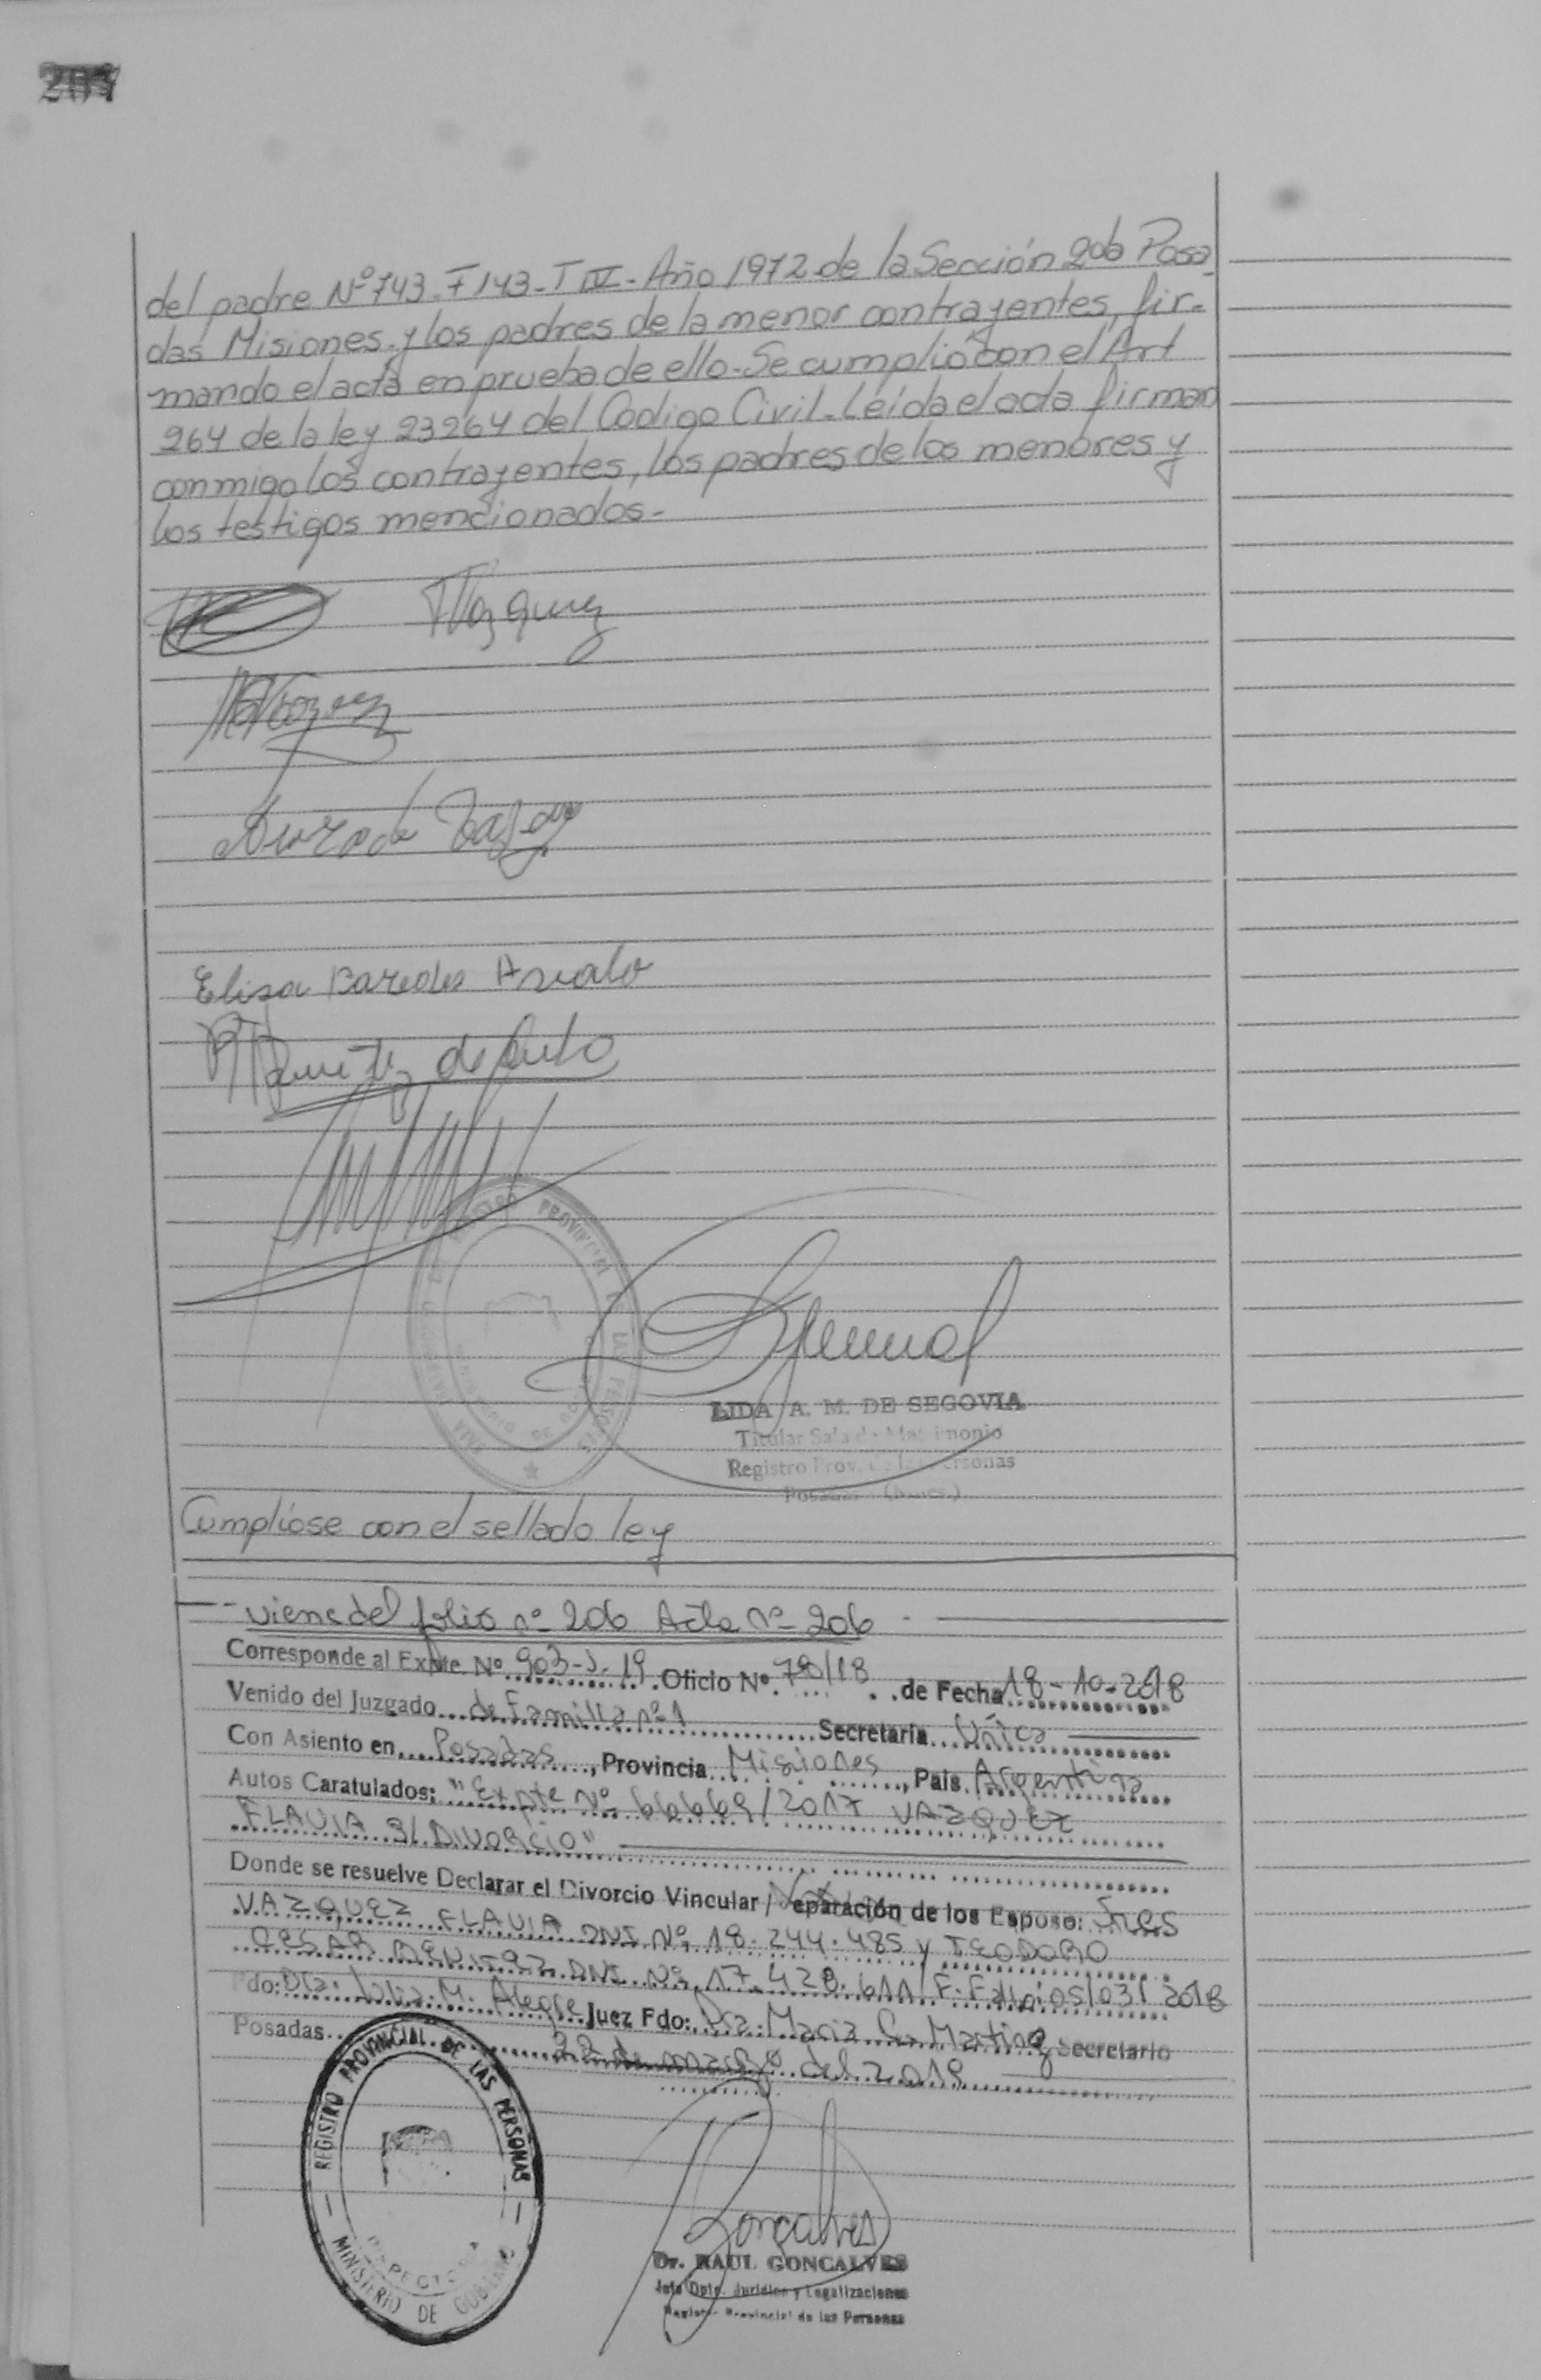 207
del padre Nº 743-F143-T IV-Año 1972 de la Sección 2da Posa
das Misiones y los padres de la menor contrayentes, fir-
mando el acta en prueba de ello-Se cumplio con el Art
264 de la ley 23264 del Codigo Civil-Leída el acta firman
conmigo los contrayentes, los padres de los menores y
los testigos mencionados-
Vazquez
Elisa Paredes Arvalo
LIDA A. M. DE SEGOVIA
Titular Sala de Matrimonio
Registro Prov. de las Personas
Posadas
Cumplióse con el sellado ley
viene del folio nº 206 Acta nº 206
Corresponde al Expte Nº 903-J-19 Oficio Nº 78/18 de Fecha 18-10-2018
Venido del Juzgado de Familia nº1 Secretaria Única
Con Asiento en Posadas, Provincia Misiones, Pais Argentina
Autos Caratulados: "Expte Nº 66669/2017 VAZQUEZ
FLAVIA S/ DIVORCIO"
Donde se resuelve Declarar el Divorcio Vincular / eparación de los Esposo: Inés
VAZQUEZ FLAVIA DNI Nº 18.244.485 y TEODORO
CESAR DNI Nº 17.428.611 F. Fallo: 05/03/2018
Fdo: Dra. M. Alegre Juez Fdo: Dra. Maria Secretario
Posadas 22 de marzo del 2019
REGISTRO PROVINCIAL DE LAS PERSONAS
MINISTERIO DE GOBIERNO
Goncalves
Dr. RAUL GONCALVES
Jefe Dpto. Jurídico y Legalizaciones
Registro Provincial de las Personas